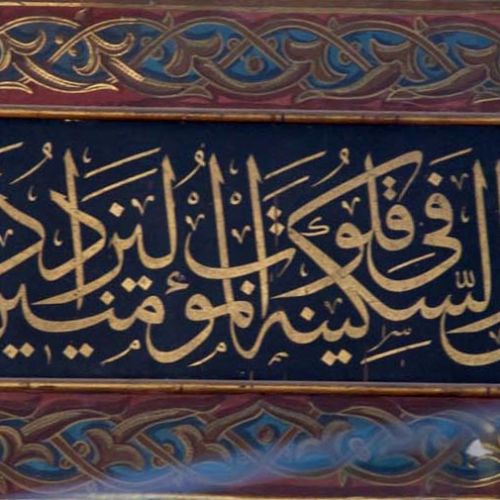 السكينة في قلوب المؤمنين ليزداد